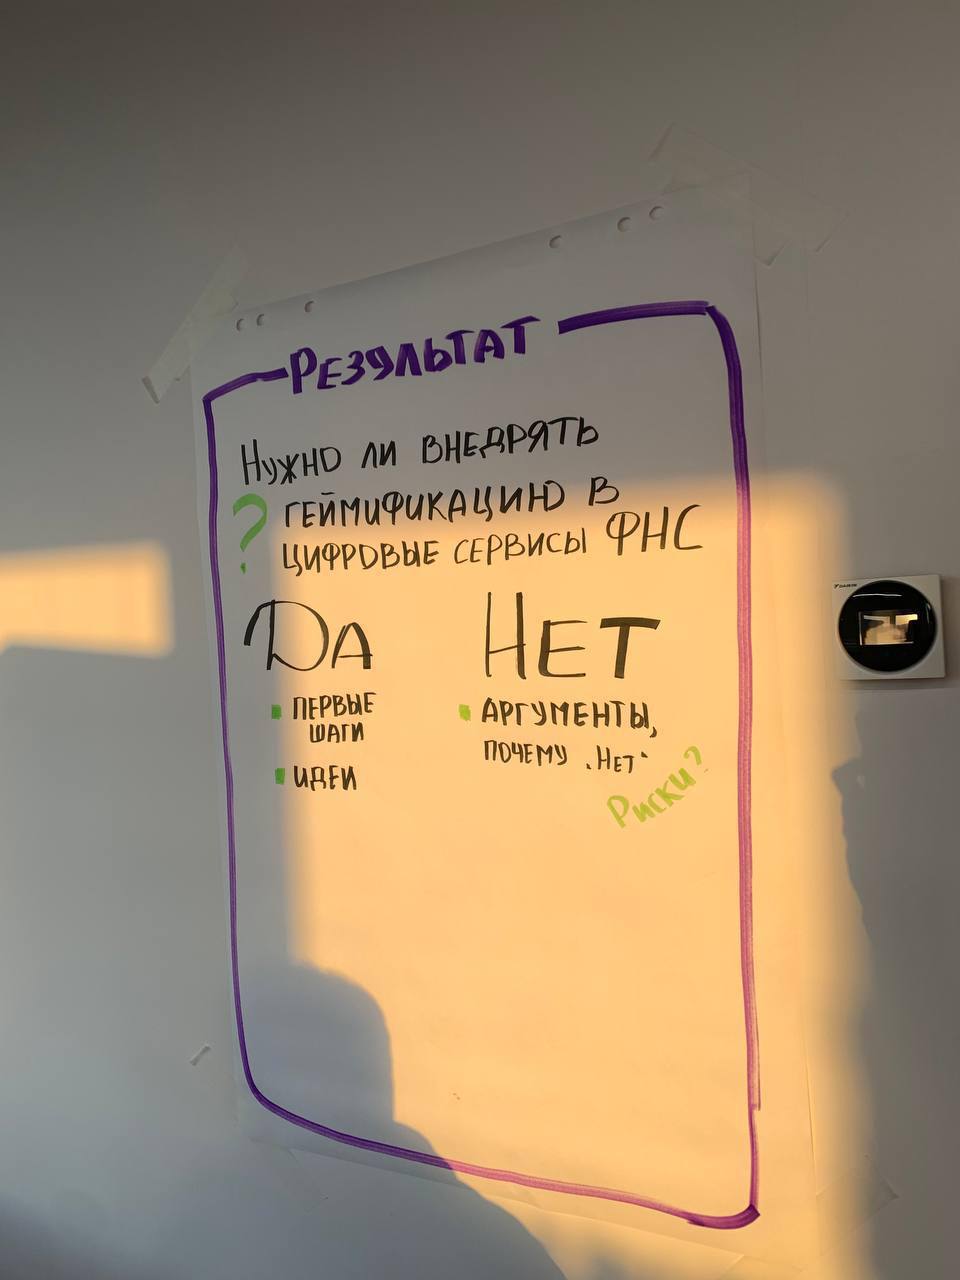 РЕЗУЛЬТАТ
НУЖНО ЛИ ВНЕДРЯТЬ
? ГЕЙМИФИКАЦИЮ В
ЦИФРОВЫЕ СЕРВИСЫ ФНС
ДА
ПЕРВЫЕ
ШАГИ
ИДЕИ
НЕТ
АРГУМЕНТЫ,
ПОЧЕМУ "НЕТ"
РИСКИ?
DAIKIN